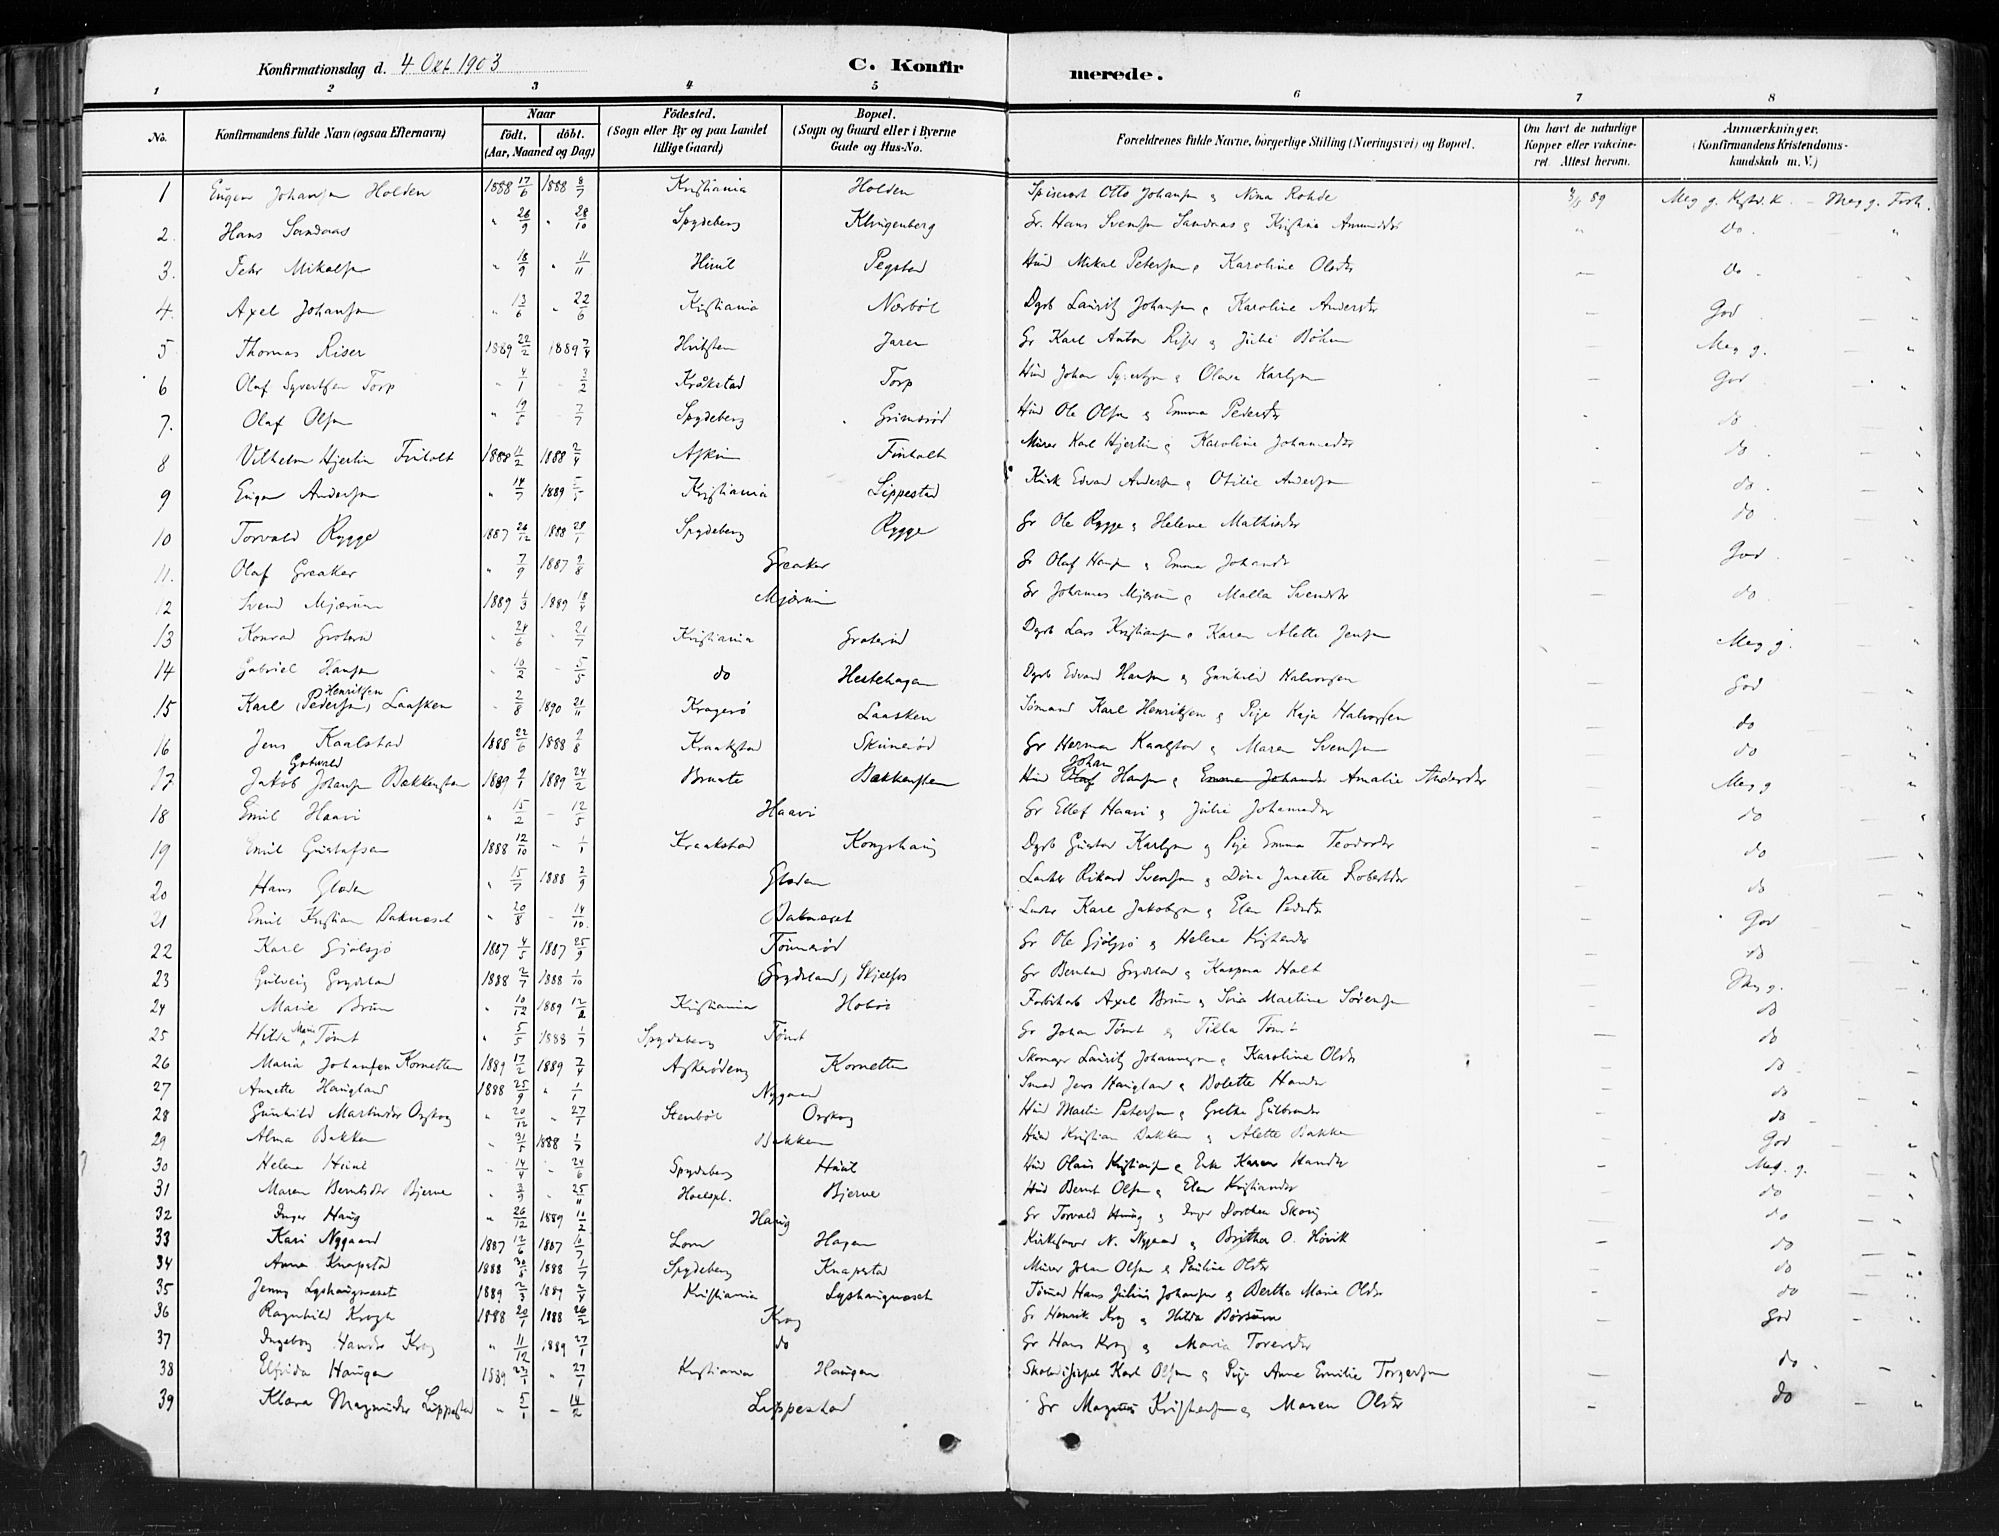 Konfirmationsdag d. 4 Okt 1903 C. Konfirmerede.
1 2 3 4 5 6 7 8
No. Konfirmandens fulde Navn (ogsaa Efternavn) Naar født, døbt. (Aar, Maaned og Dag) Fødested. (Sogn eller By og paa Landet tillige Gaard) Bopæl. (Sogn og Gaard eller i Byerne Gade og Hus-No. Forældrenes fulde Navne, borgerlige Stilling (Næringsvei) og Bopæl. Om havt de naturlige Kopper eller vaccineret. Attest herom. Anmærkninger. (Konfirmandens Kristendomskundskab m. V.)
1 Eugen Johansen Holden 1888 17/6 1888 8/7 Kristiania Holden Otto Johansen & Nina Rohde 89 Meg g.
2. Hans Sandaas " 26/9 " 28/10 Spydeberg Klingenberg Gr. Hans Svensen Sandaas & Kristine do.
3. Peter Mikalsen " 18/9 " 11/11 Huul Pegstad Hmd Mikal Petersen & Karoline Olsdtr — do.
4. Axel Johansen " 13/6 " 22/6 Kristiania Nærbøl Dgrb Lauritz Johansen & Karoline Andersdtr — God
5 Thomas Riser 1889 22/2 1889 7/4 Hvitsten Jaren Gr Karl Anton Riser & Julie Bøhm — Meg g.
6 Olaf Syvertsen Torp " 4/1 3/2 Kråkstad Torp Hmd Johan Syvertsen & Olava Karlsen — God
7. Olaf Olsen " 19/5 7/7 Spydeberg Grimsrød Hmd Ole Olsen & Emma Pedersdtr do
8 Vilhelm Hjertin Finholt 1888 11/2 1888 2/4 Askim Finholt Murer Karl Hjertin & Karoline Johannesdtr do
9 Eugen Andersen " 14/7 1889 5/5 Kristiania Lippestad Edvard Andersen & Otilie Andersen — do.
10 Torvald Rygge 1887 26/12 1888 29/1 Spydeberg Rygge Gr Ole Rygge & Helene Mathisdtr do
11. Olaf Greaker " 7/9 1887 9/8 Greaker Gr Olaf Hansen & Emma Johansdtr — God
12 Svend Mjærum 1889 1/3 1889 18/4 Mjærum Gr Johannes Mjærum & Malla Svendsdtr — do.
13 Konrad " 24/6 21/7 Kristiania Dgrb Lars Kristiansen & Karen Alette Jensen — Meg g.
14 Gabriel Hansen 10/2 5/5 do Hestehagen Dgrb Edvard Hansen & Gunhild Halvorsen — God
15 Karl (Pedersen) Henriksen Laasken 2/8 1890 21/11 Kragerø Laasken Sømand Karl Henriksen & Pige Kaja Halvorsen — do
16 Jens Kaalstad 1888 22/6 1888 9/8 Kraakstad Skinnerød Gr Herman Kaalstad & Maren Svendsen — do
17. Jakob Gotvald Johansen Bækkensten 1889 9/1 1889 24/2 Bækkensten Hmd Olaf Johan Hansen & Emma Johansdtr Amalie Andersdtr — Meg g
18 Emil Haavi " 15/2 — 12/5 Haavi Gr Ellef Haavi & Julie Johannesdtr — do
19 Emil Gustafsen 1888 12/10 1/1 Kraakstad Kongshaug Dgrb Gustav Karlsen & Pige Emma Teodorsdtr — do
20 Hans Gladen " 15/7 1888 2/9 Gladen Rikard Svensen & Dina Janette Robertsdtr — do
21 Emil Kristian " 20/8 — 14/10 Karl Jakobsen & Elen Pedersdtr — God
22 Karl Gjølsjø 1887 4/5 1887 25/9 Tønnerød Gr Ole Gjølsjø & Helene Kristiansdtr — do
23 Gulveig Grydeland 1888 2/7 1888 1/10 Grydeland, Skjelfos Gr Bernhard Grydeland & Kaspara Holt — Meg g.
24 Marie Brun " 10/12 1889 12/2 Kristiania Hobøl Axel Brun & Martine Sørensen — do
25 Hilda Marie Tømt " 5/5 1888 1/7 Spydeberg Tømt Gr Johan Tømt & Tilla Tømt — do
26 Maria Johansen Kornetten 1889 17/2 1889 7/4 Kornetten Skomager Lauritz Johannesen & Karoline Olsdtr do
27 Annette Haugland 1888 25/9 " 1/1 Nygaard Smed Jens Haugland & Bolette Hansdtr — do
28 Gunhild Martinsdtr " 20/12 " 27/1 Stenbøl Hmd Martin Petersen & Grethe Gulbrandsdtr — do
29 Alma Bakken " 31/5 1888 1/7 Bakken Hmd Kristian Bakken & Alette Bakken God
30 Helene Huul " 14/4 24/6 Spydeberg Huul Hmd Olaus Kristiansen & Karen Hansdtr — Meg. g.
31 Maren Berntsdtr Bjerne " 3/9 " 25/11 Hoelspl. Bjerne Hmd Bernt Olsen & Elen Kristiansdtr — do
32 Inger Haug " 26/12 1889 10/2 Haug Gr Torvald Haug & Inger Dorthea Skoug do
33 Kari Nygaard 1887 12/6 1887 10/7 Lom Hagen Kirkesanger N. Nygaard & Brittha O. Høvik — do
34 Anna Knapstad 1888 30/5 1888 1/7 Spydeberg Knapstad Murer Johan Olsen & Pauline Olsdtr — do
35 Jenny Lyshaugnæset 1889 2/3 1889 2/4 Kristiania Lyshaugnæset Tømmed Hans Julius Johansen & Berthe Marie Olsdtr — do
36 Ragnhild Krogh 1888 20/1 1888 26/2 Krog Gr Henrik Krog & Hilda Børsum — God
37 Ingeborg Hansdtr Krog " 11/12 1889 27/1 do Gr Hans Krog & Maria Torersdtr —
38 Elfrida Haugen 1889 23/1 " 27/1 Kristiania Haugen Karl Olsen & Pige Anne Emilie Torgersen — do.
39 Klara Magnusdtr Lippestad " 5/1 — 14/2 Lippestad Gr Magnus Kristiansen & Maren Olsdtr — do